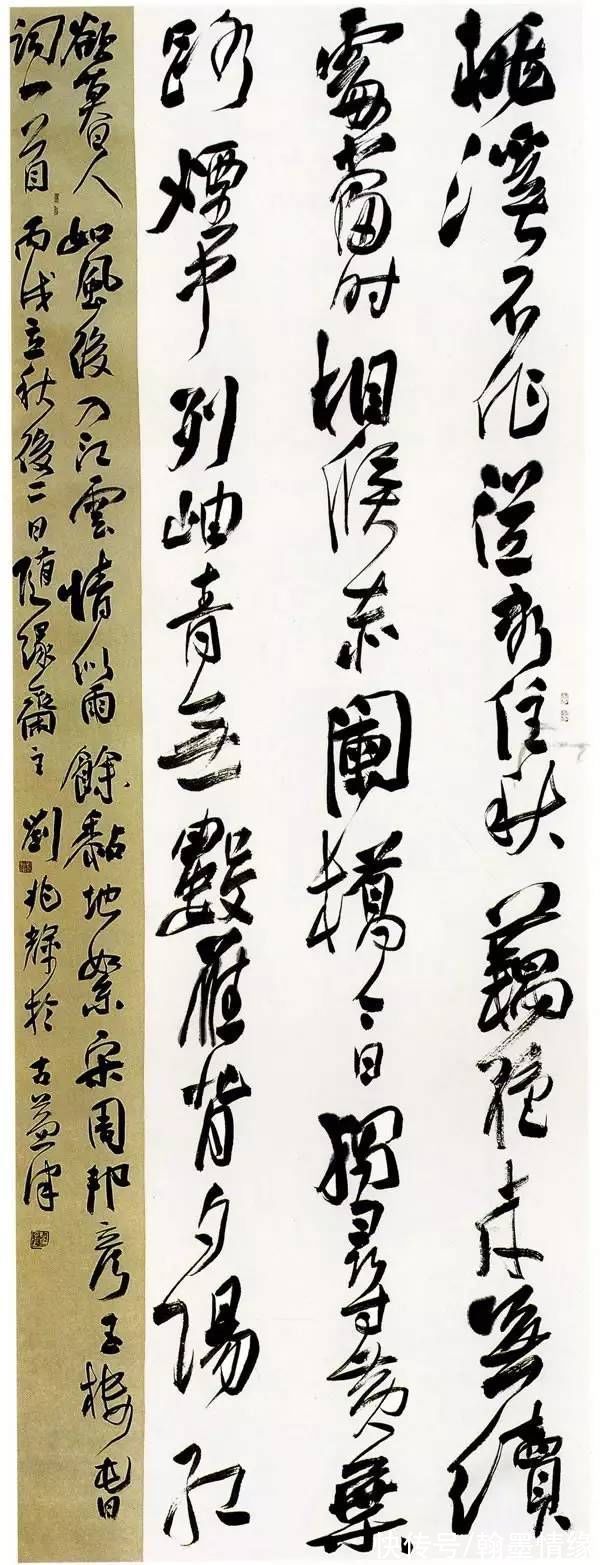 桃溪不作從容住秋藕絕來無續
處當時相候赤闌橋今日獨尋黃葉
路煙中列岫青無數雁背夕陽紅
欲暮人如風後入江雲情似雨餘黏地絮宋周邦彥玉樓春
詞一首丙戌立秋後二日隨緣齋主劉兆於古益津
快传号/翰墨情缘